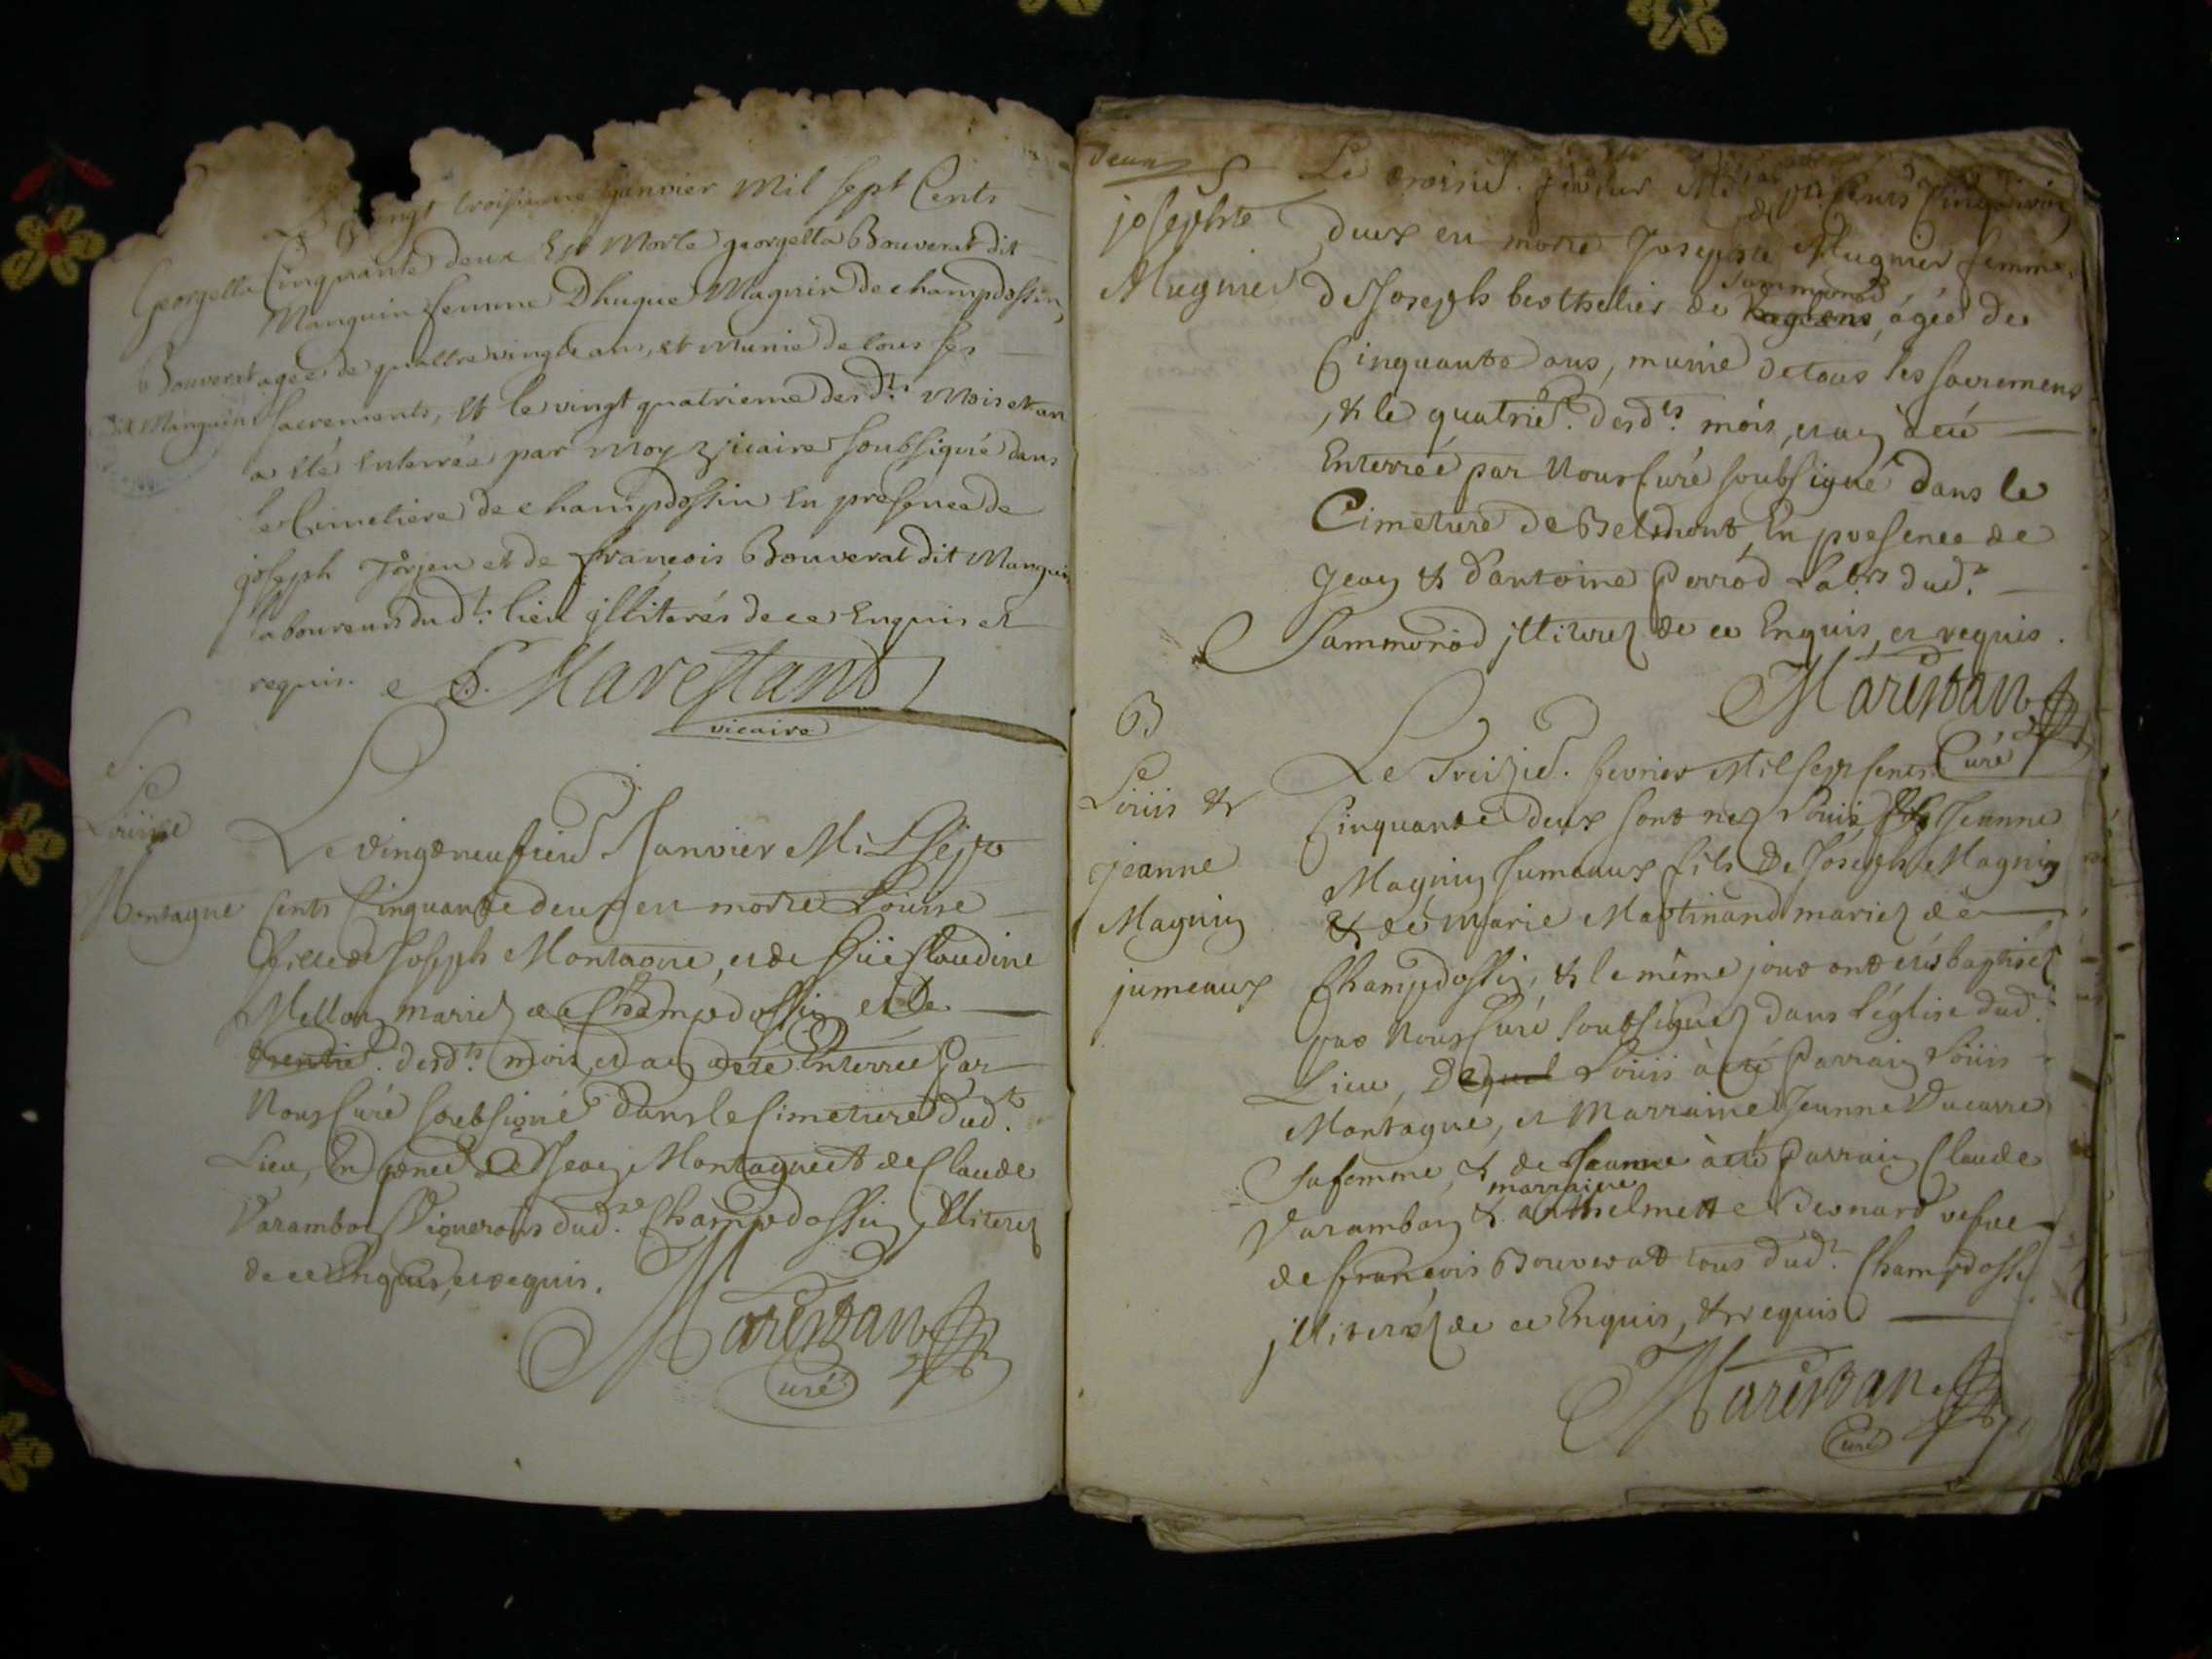 vingt troisieme janvier Mil sept Cents
Georgetta Cinquante deux Est Morte georgetta Bouverat dit
Manguin femme Dhugue Magnin de champdossin,
Bouverat agée de quattrevingts ans, et munie de tous ses
dit Manguin sacrements, Et le vingt quatrieme desd.ts Mois et an
a été Enterrée par Moy vicaire soubsigné dans
le Cimetiere de champdossin En presence de
joseph Jorjon et de françois Bouverat dit Manguin
laboureurs dud.t lieu jlliterés de ce Enquis et
requis. Marestand
vicaire
S.
Louise
Montagne
Le vingt neufiem Janvier Mil Sept
Cents Cinquante deux est morte Louise
fille de Joseph Montagne, et de Claudine
Mellon mariez de Champdossin et le
trentie. desd.ts mois, et an a eté Enterree Par
Nous Curé soubsigné dans le Cimetiere dud.t
Lieu, En pnce de Jean Montagne et de Claude
Varambon Vignerons dud.t Champdossin jlliterez
de ce Enquis, et requis.
Marestan
Curé
deux
S
josephte
Mugnier
Le troisie. fevrier Mil sept Cents Cinquante
deux est morte Josephte Mugnier femme
Sammonod
de Joseph berthelier de, âgée de
Cinquante ans, munie de tous les sacremens
, & le quatrie. desd.ts mois, et an a eté
Enterreé par Nous Curé soubsigné dans le
Cimetiere de Belmont, En presence de
Jean & d'antoine Perrod Lab.rs dud.t
Sammonod jlliterez de ce Enquis, et requis.
Marestan
Curé
B
Loüis &
jeanne
Magnin
jumeaux
Le Treizie. fevrier Mil sept Cents
Cinquante deux sont nez Loüis & Jeanne
Magnin Jumeaux fils de Joseph Magnin
& de Marie Martinand mariez de
Champdossin, & le même jour ont etés baptisez
par Nous Curé soubsignez dans l'église dud.t
Lieu, Dequel Loüis à eté Parrain Loüis
Montagne, et Marraine Jeanne Ducarre
Sa femme, & de Jeanne à eté Parrain Claude
marraine
Varambon & anthelmette Bernard vefve
de françois Bouverat tous dud.t Champdossin
jlliterez de ce Enquis, & requis
Marestan
Curé